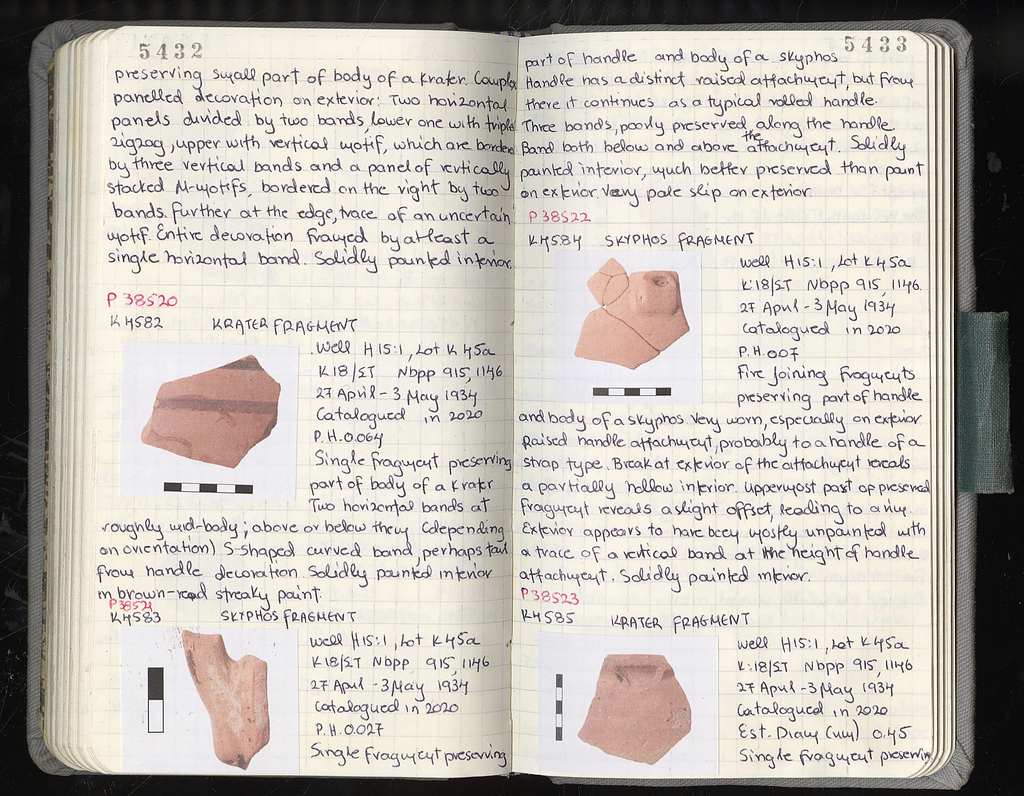 5432
preserving small part of body of a krater. Complex
panelled decoration on exterior: Two horizontal
panels divided by two bands, lower one with triple
zigzag, upper with vertical motif, which are bordered
by three vertical bands and a panel of vertically
stacked M-motifs, bordered on the right by two
bands. Further at the edge, trace of an uncertain
motif. Entire decoration framed by at least a
single horizontal band. Solidly painted interior.
P 38520
K4582 KRATER FRAGMENT
Well H15:1, Lot K45a
K18/ΣΤ Nbpp 915, 1146
27 April - 3 May 1934
Catalogued in 2020
P.H. 0.064
Single fragment preserving
part of body of a krater
Two horizontal bands at
roughly mid-body; above or below them (depending
on orientation) S-shaped curved band, perhaps tail
from handle decoration. Solidly painted interior
in brown-red streaky paint.
P38521
K4583 SKYPHOS FRAGMENT
Well H15:1, Lot K45a
K18/ΣΤ Nbpp 915, 1146
27 April - 3 May 1934
Catalogued in 2020
P.H. 0.027
Single fragment preserving
5433
part of handle and body of a skyphos
Handle has a distinct raised attachment, but from
there it continues as a typical rolled handle.
Three bands, poorly preserved along the handle
Band both below and above the attachment. Solidly
painted interior, much better preserved than paint
on exterior. Very pale slip on exterior
P 38522
K4584 SKYPHOS FRAGMENT
Well H15:1, Lot K45a
K18/ΣΤ Nbpp 915, 1146.
27 April - 3 May 1934
Catalogued in 2020
P.H. 0.07
Five joining fragments
preserving part of handle
and body of a skyphos Very worn, especially on exterior
Raised handle attachment, probably to a handle of a
strap type. Break at exterior of the attachment reveals
a partially hollow interior. Uppermost part of preserved
fragment reveals a slight offset, leading to a rim
Exterior appears to have been mostly unpainted with
a trace of a vertical band at the height of handle
attachment. Solidly painted interior.
P38523
K4585 KRATER FRAGMENT
Well H15:1, Lot K45a
K:18/ΣΤ Nbpp 915, 1146
27 April - 3 May 1934
Catalogued in 2020
Est. Diam (rim) 0.45
Single fragment preserving